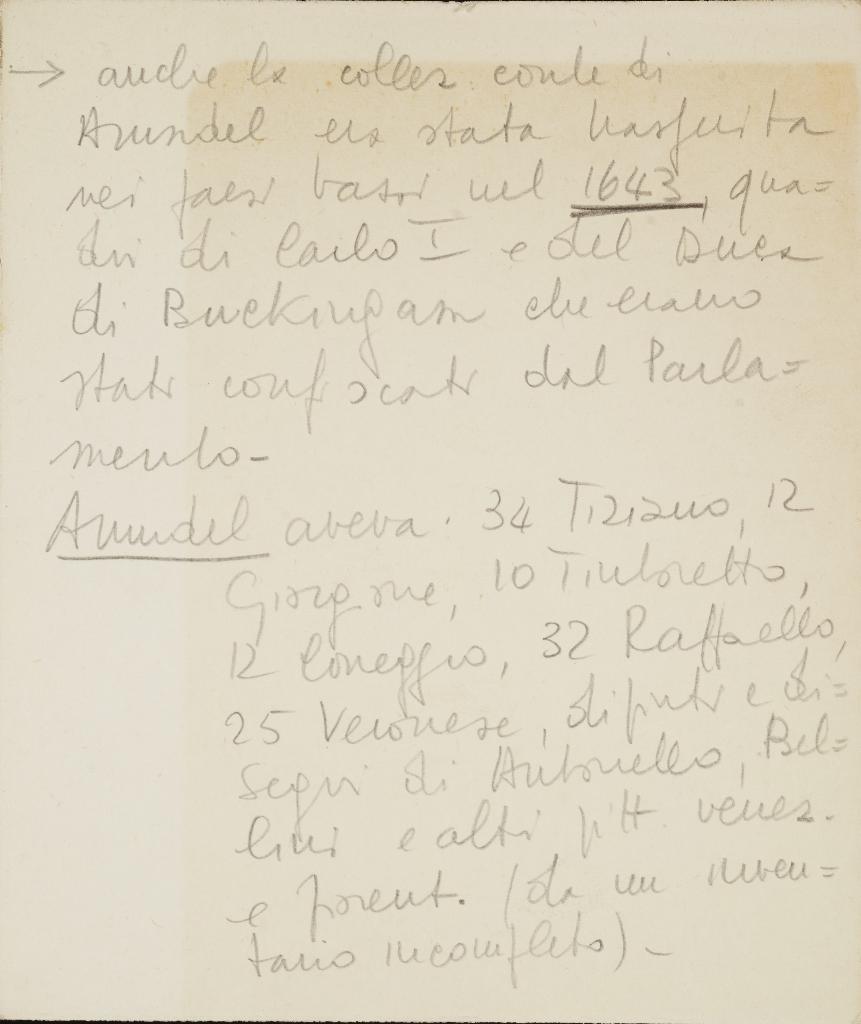 → anche la collez conte di
Arundel era stata trasferita
nei paesi bassi nel 1643, qua=
dri di Carlo I e del Duca
di Buckingam che erano
stati confiscati dal Parla=
mento-
Arundel aveva. 34 Tiziano, 12
Giorgione, 10 Tintoretto,
12 Correggio, 32 Raffaello,
25 Veronese, dipinti e di=
segni di Antonello, Bel=
lini e altri pitt. venez.
e fiorent. (da un inven=
tario incompleto) -